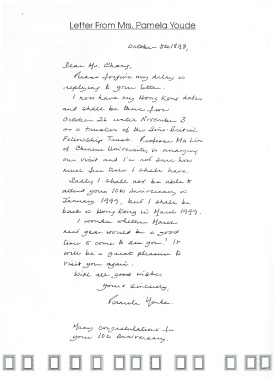 Letter From Mrs. Pamela Youde
October 5th 1998,
Dear Mr. Chang,
Please forgive my delay in
replying to your letter.
I now have my Hong Kong dates
and shall be there from
October 26 until November 3
as a trustee of the Sino-British
Fellowship Trust. Professor Ma Lin
of Chinese University is arranging
our visit and I'm not sure how
much free time I shall have.
Sadly I shall not be able to
attend your 10th Anniversary in
January 1999, but I shall be
back in Hong Kong in March 1999.
I wonder whether March
next year would be a good
time to come to see you? It
will be a great pleasure to
visit you again.
With all good wishes
Yours sincerely,
Pamela Youde.
Many congratulations for
your 10th Anniversary.